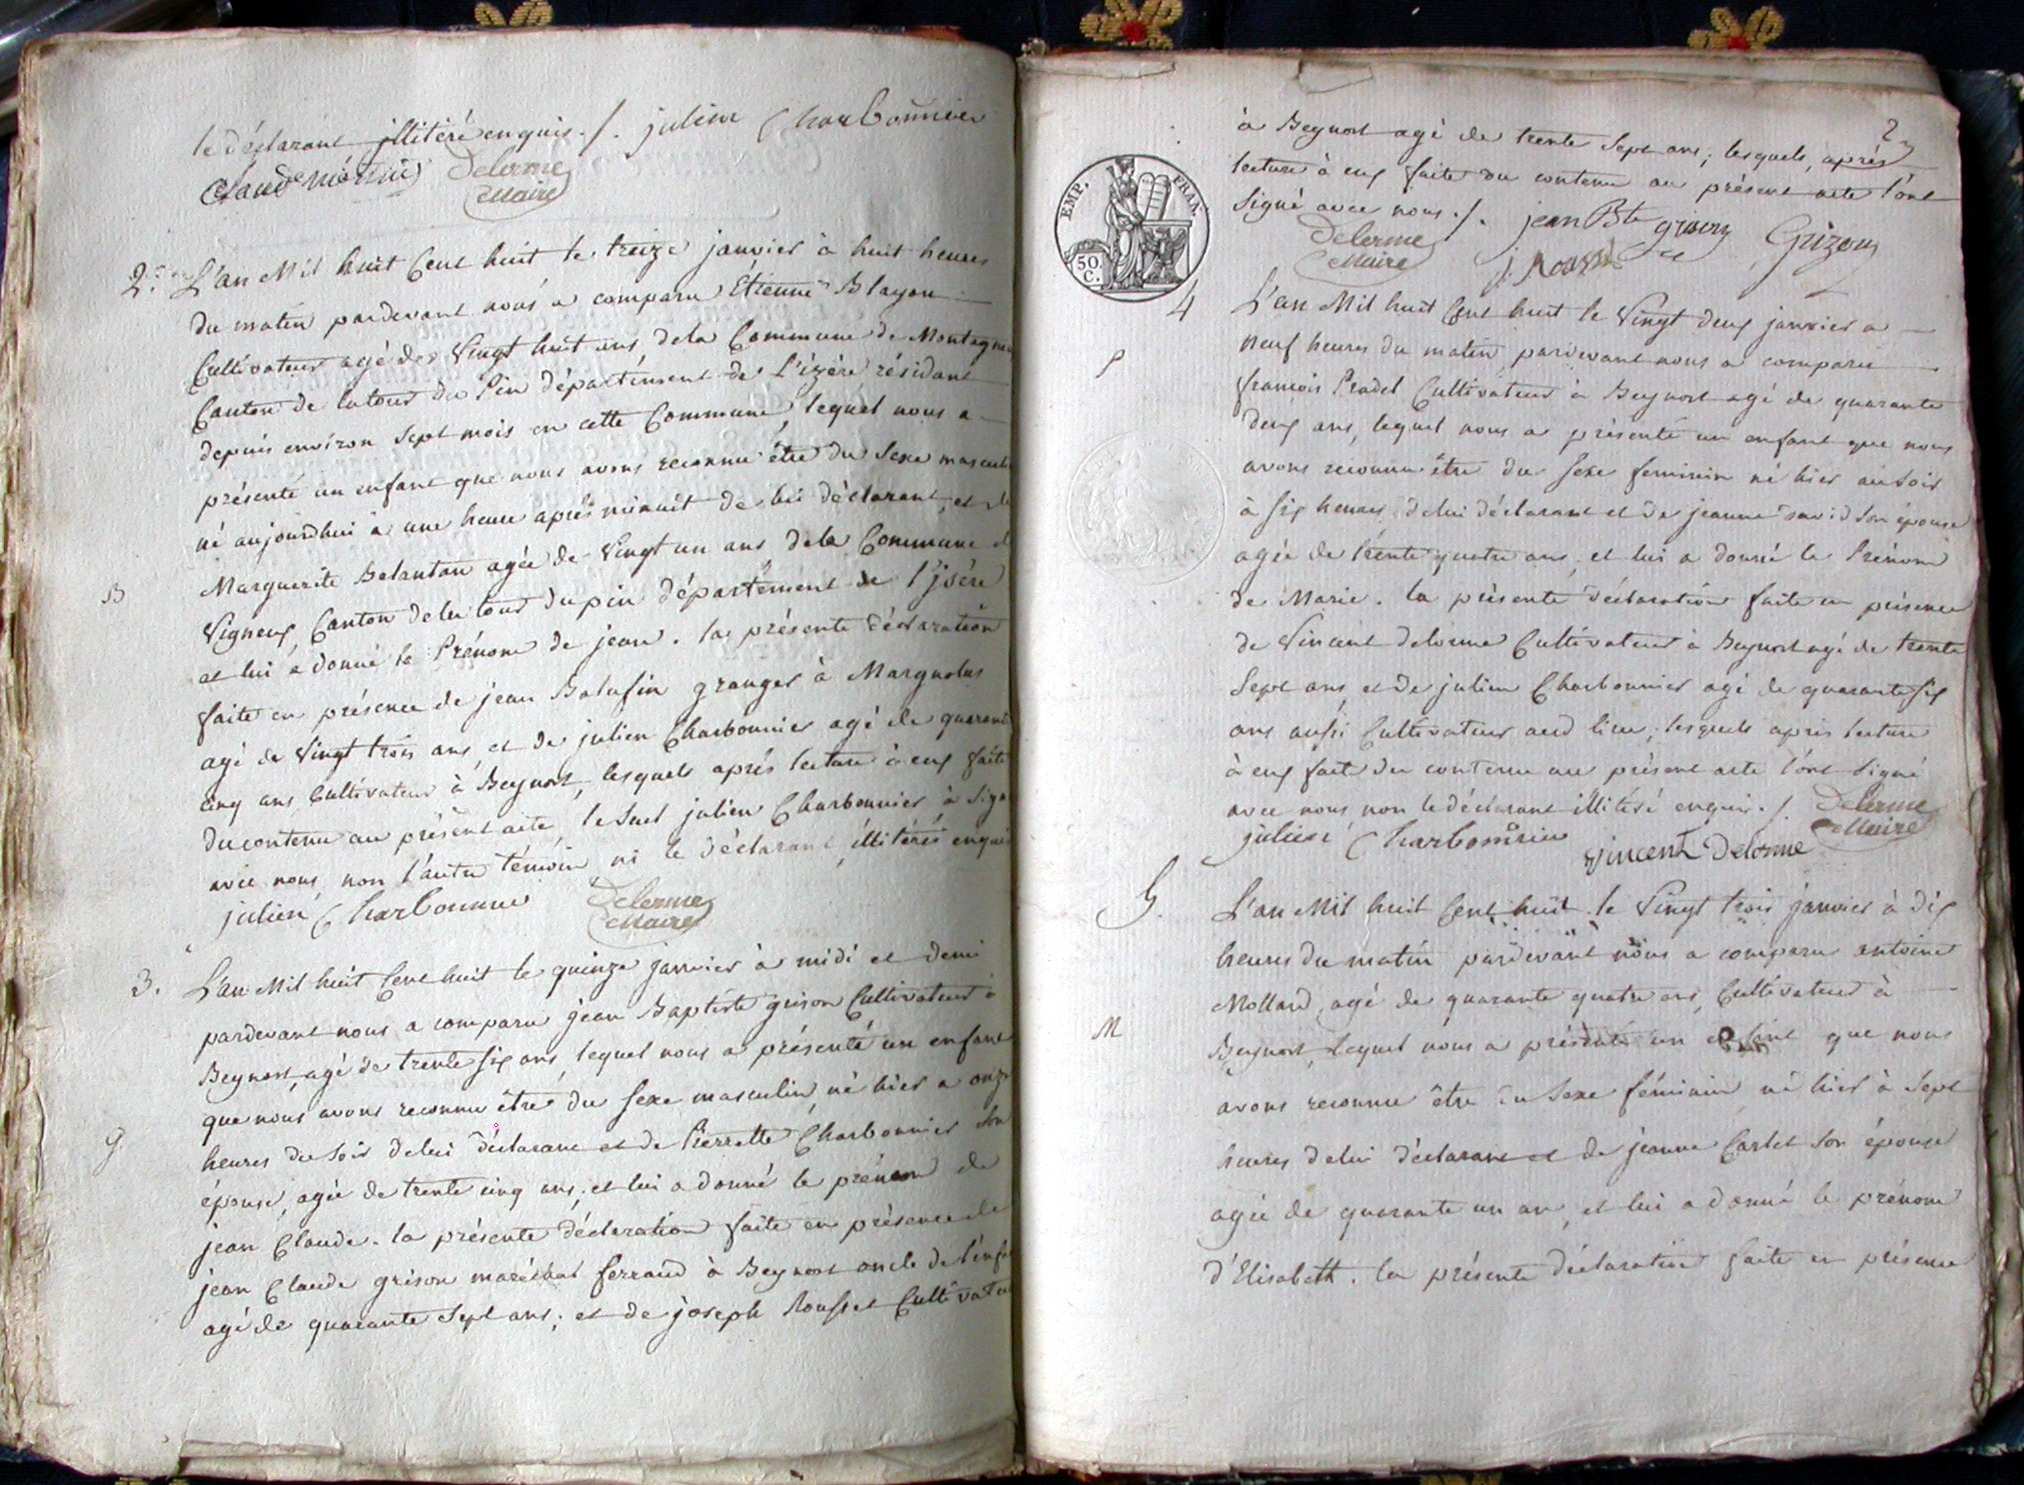 le déclarant illitéré enquis ./. julien Charbonnier
Claude Delorme
Maire
2. L'an Mil huit Cent huit le treize janvier à huit heures
du matin pardevant nous a comparu Étienne Blayon
Cultivateur agé de Vingt huit ans de la Commune de Montagnieu
Canton de latour du Pin département de l'izère résidant
depuis environ Sept mois en cette Commune, lequel nous a
présenté un enfant que nous avons reconnu être du Sexe masculin
né aujourdhui à une heure après minuit de lui déclarant, et de
Marguerite agée de Vingt un ans de la Commune de
B
Vigneux Canton de la tour dupin département de l'jsère
et lui a donné le Prénom de jean. la présente déclaration
faite en présence de jean granger à Margnolas
agé de Vingt trois ans, et de julien Charbonnier agé de quarante
cinq ans Cultivateur à Beynost, lesquels après lecture à eux faite
du contenu au présent acte, le Suel julien Charbonnier à Signé
avec nous, non l'autre témoin ni le déclarant, illitérés enquis
julien Charbonnier Delorme
Maire
3. L'an Mil huit Cent huit le quinze janvier à midi et demi
pardevant nous a comparu jean Baptiste grison Cultivateur à
Beynost, agé de trente six ans, lequel nous a présenté un enfant
que nous avons reconnu être du Sexe masculin, né hier a onze
g
heures du Soir de lui déclarant et de Pierrette Charbonnier Son
épouse, agée de trente cinq ans, et lui a donné le prénom de
jean Claude. la présente déclaration faite en présence de
jean Claude grison maréchal ferrand à Beynost oncle de l'enfant
agé de quarante Sept ans; et de joseph Rousset Cultivateur
2
à Beynost agé de trente Sept ans; lesquels, après
lecture à eux faite du contenu au présent acte l'ont
Signé avec nous ./. jean Bte grison Grizon
Delorme
Maire
EMP. FRAN.
50 C.
4 L'an Mil huit Cent huit le Vingt deux janvier a
neuf heures du matin, pardevant nous a comparu
P
francois Pradel Cultivateur à Beynost agé de quarante
deux ans, lequel nous a présenté un enfant que nous
avons reconnu être du Sexe feminin né hier au Soir
à Six heures, de lui déclarant et de jeanne david Son épouse
agée de trente quatre ans, et lui a donné le Prénom
de Marie. la présente déclaration faite en présence
de Vincent delorme Cultivateur à Beynost agé de trente
Sept ans, et de julien Charbonnier agé de quarante six
ans aussi Cultivateur aud lieu; lesquels après lecture
à eux fait du contenu au présent acte l'ont Signé
avec nous non le déclarant illitéré enquis ./. Delorme
Maire
julien Charbonnier vincent Delorme
5. L'an Mil huit Cent huit le Vingt trois janvier à dix
heures du matin pardevant nous a comparu antoine
Mollard, agé de quarante quatre ans, Cultivateur à
M
Beynost, lequel nous a présenté un enfant que nous
avons reconnu être du Sexe féminin né hier à Sept
heures de lui déclarant et de jeanne Carlet Son épouse
agée de quarante un an, et lui a donné le prénom
d'Elisabeth. la présente déclaration faite en présence